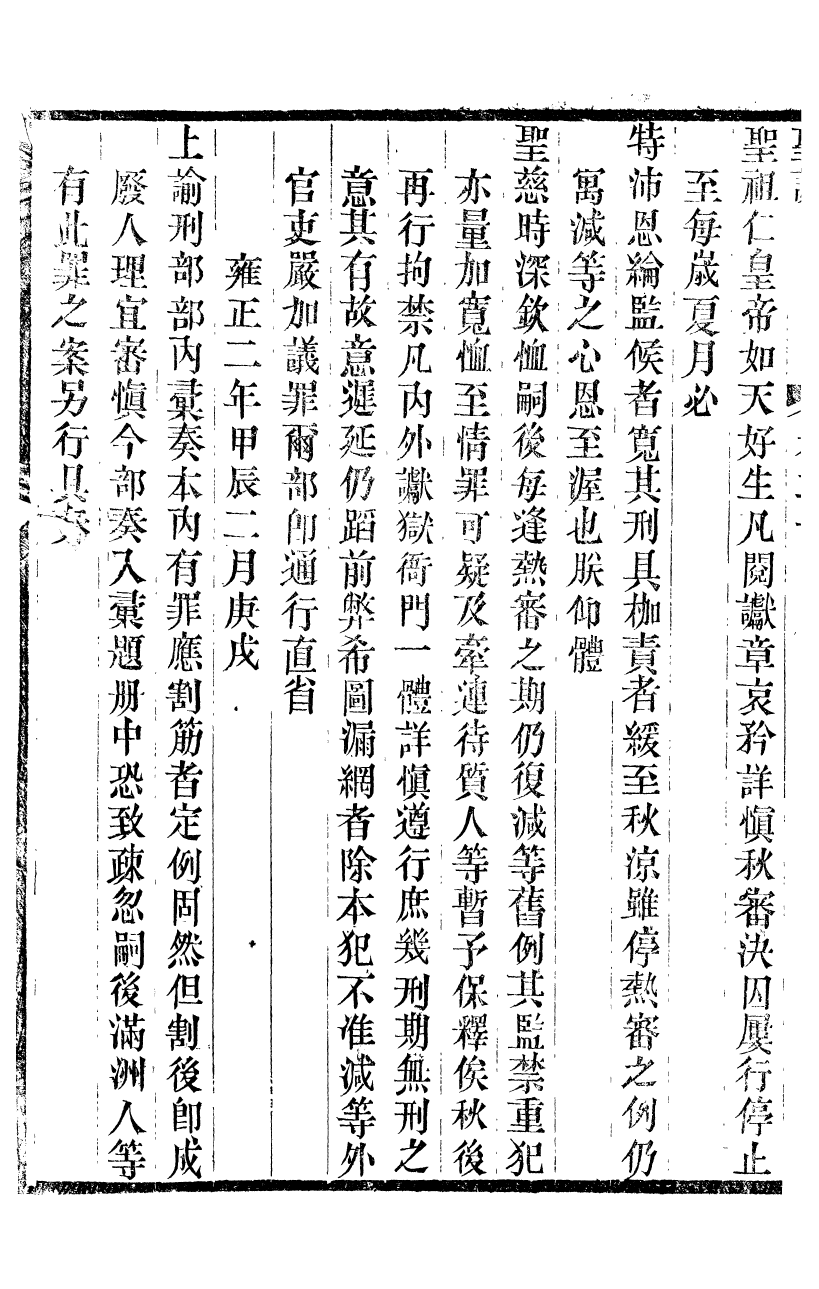 聖祖仁皇帝如天好生凡閱讞章哀矜詳愼秋審決囚屢行停止
至每歲夏月必
特沛恩綸監候者寬其刑具枷責者緩至秋涼雖停熱審之例仍
寓減等之心恩至渥也朕仰體
聖慈時深欽恤嗣後每逢熱審之期仍復減等舊例其監禁重犯
亦量加寬恤至情罪可疑及牽連待質人等暫予保釋俟秋後
再行拘禁凡內外讞獄衙門一體詳愼遵行庶幾刑期無刑之
意其有故意遲延仍蹈前弊希圖漏網者除本犯不准減等外
官吏嚴加議罪爾部卽通行直省
雍正二年甲辰二月庚戌
上諭刑部部內彚奏本內有罪應割筋者定例固然但割後卽成
廢人理宜審愼今部奏入彚題册中恐致疎忽嗣後滿洲人等
有此罪之案另行具奏